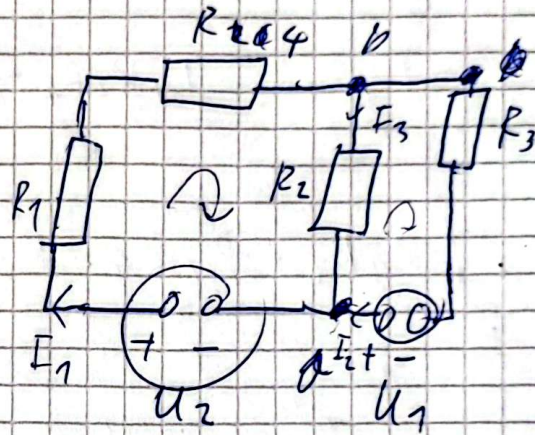 R 4 b
I3
R3
R2
R1
I1
+ -
a I2 + -
U2 U1